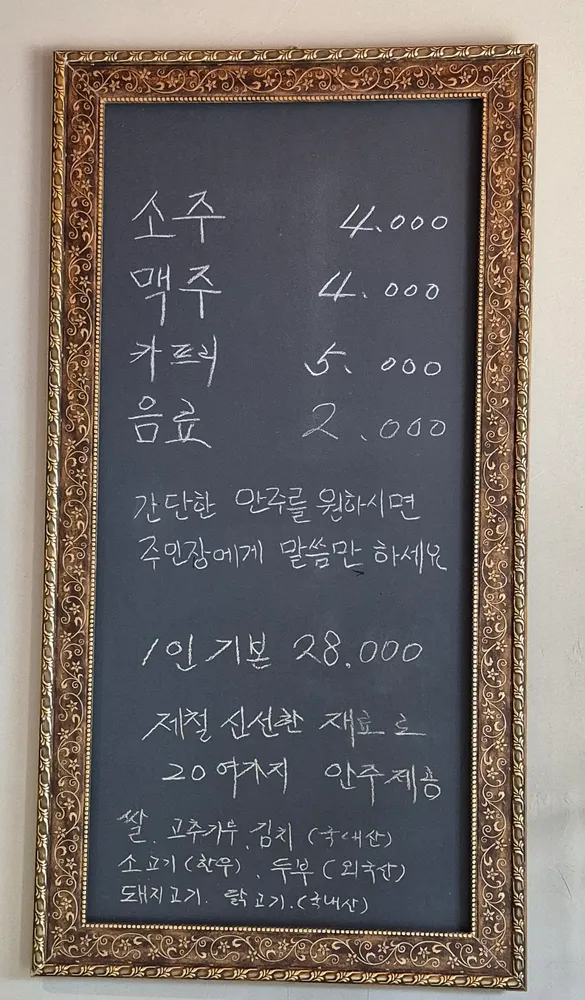 소주 4.000
맥주 4.000
카프리 5.000
음료 2.000
간단한 안주를 원하시면
주인장에게 말씀만 하세요
1인 기본 28.000
제철 신선한 재료로
20여가지 안주제공
쌀. 고추가루. 김치 (국내산)
소고기 (한우). 두부 (외국산)
돼지고기. 닭고기. (국내산)